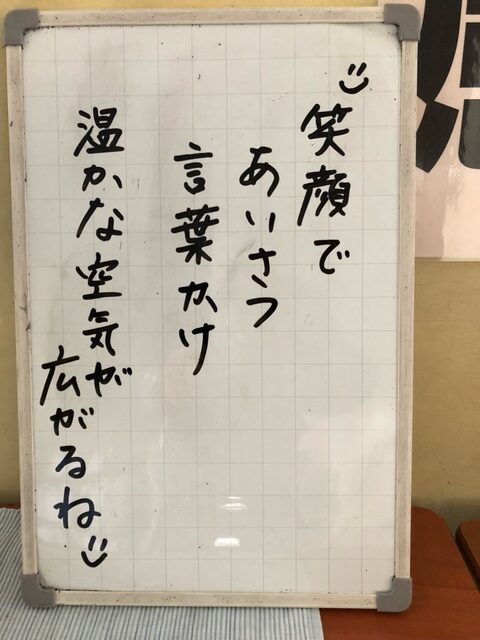 笑顔で
あいさつ
言葉かけ
温かな空気が
広がるね